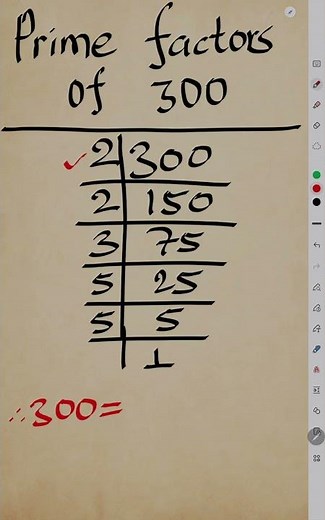 Prime factors
of 300
2 300
2 150
3 75
5 25
5 5
1
∴300=